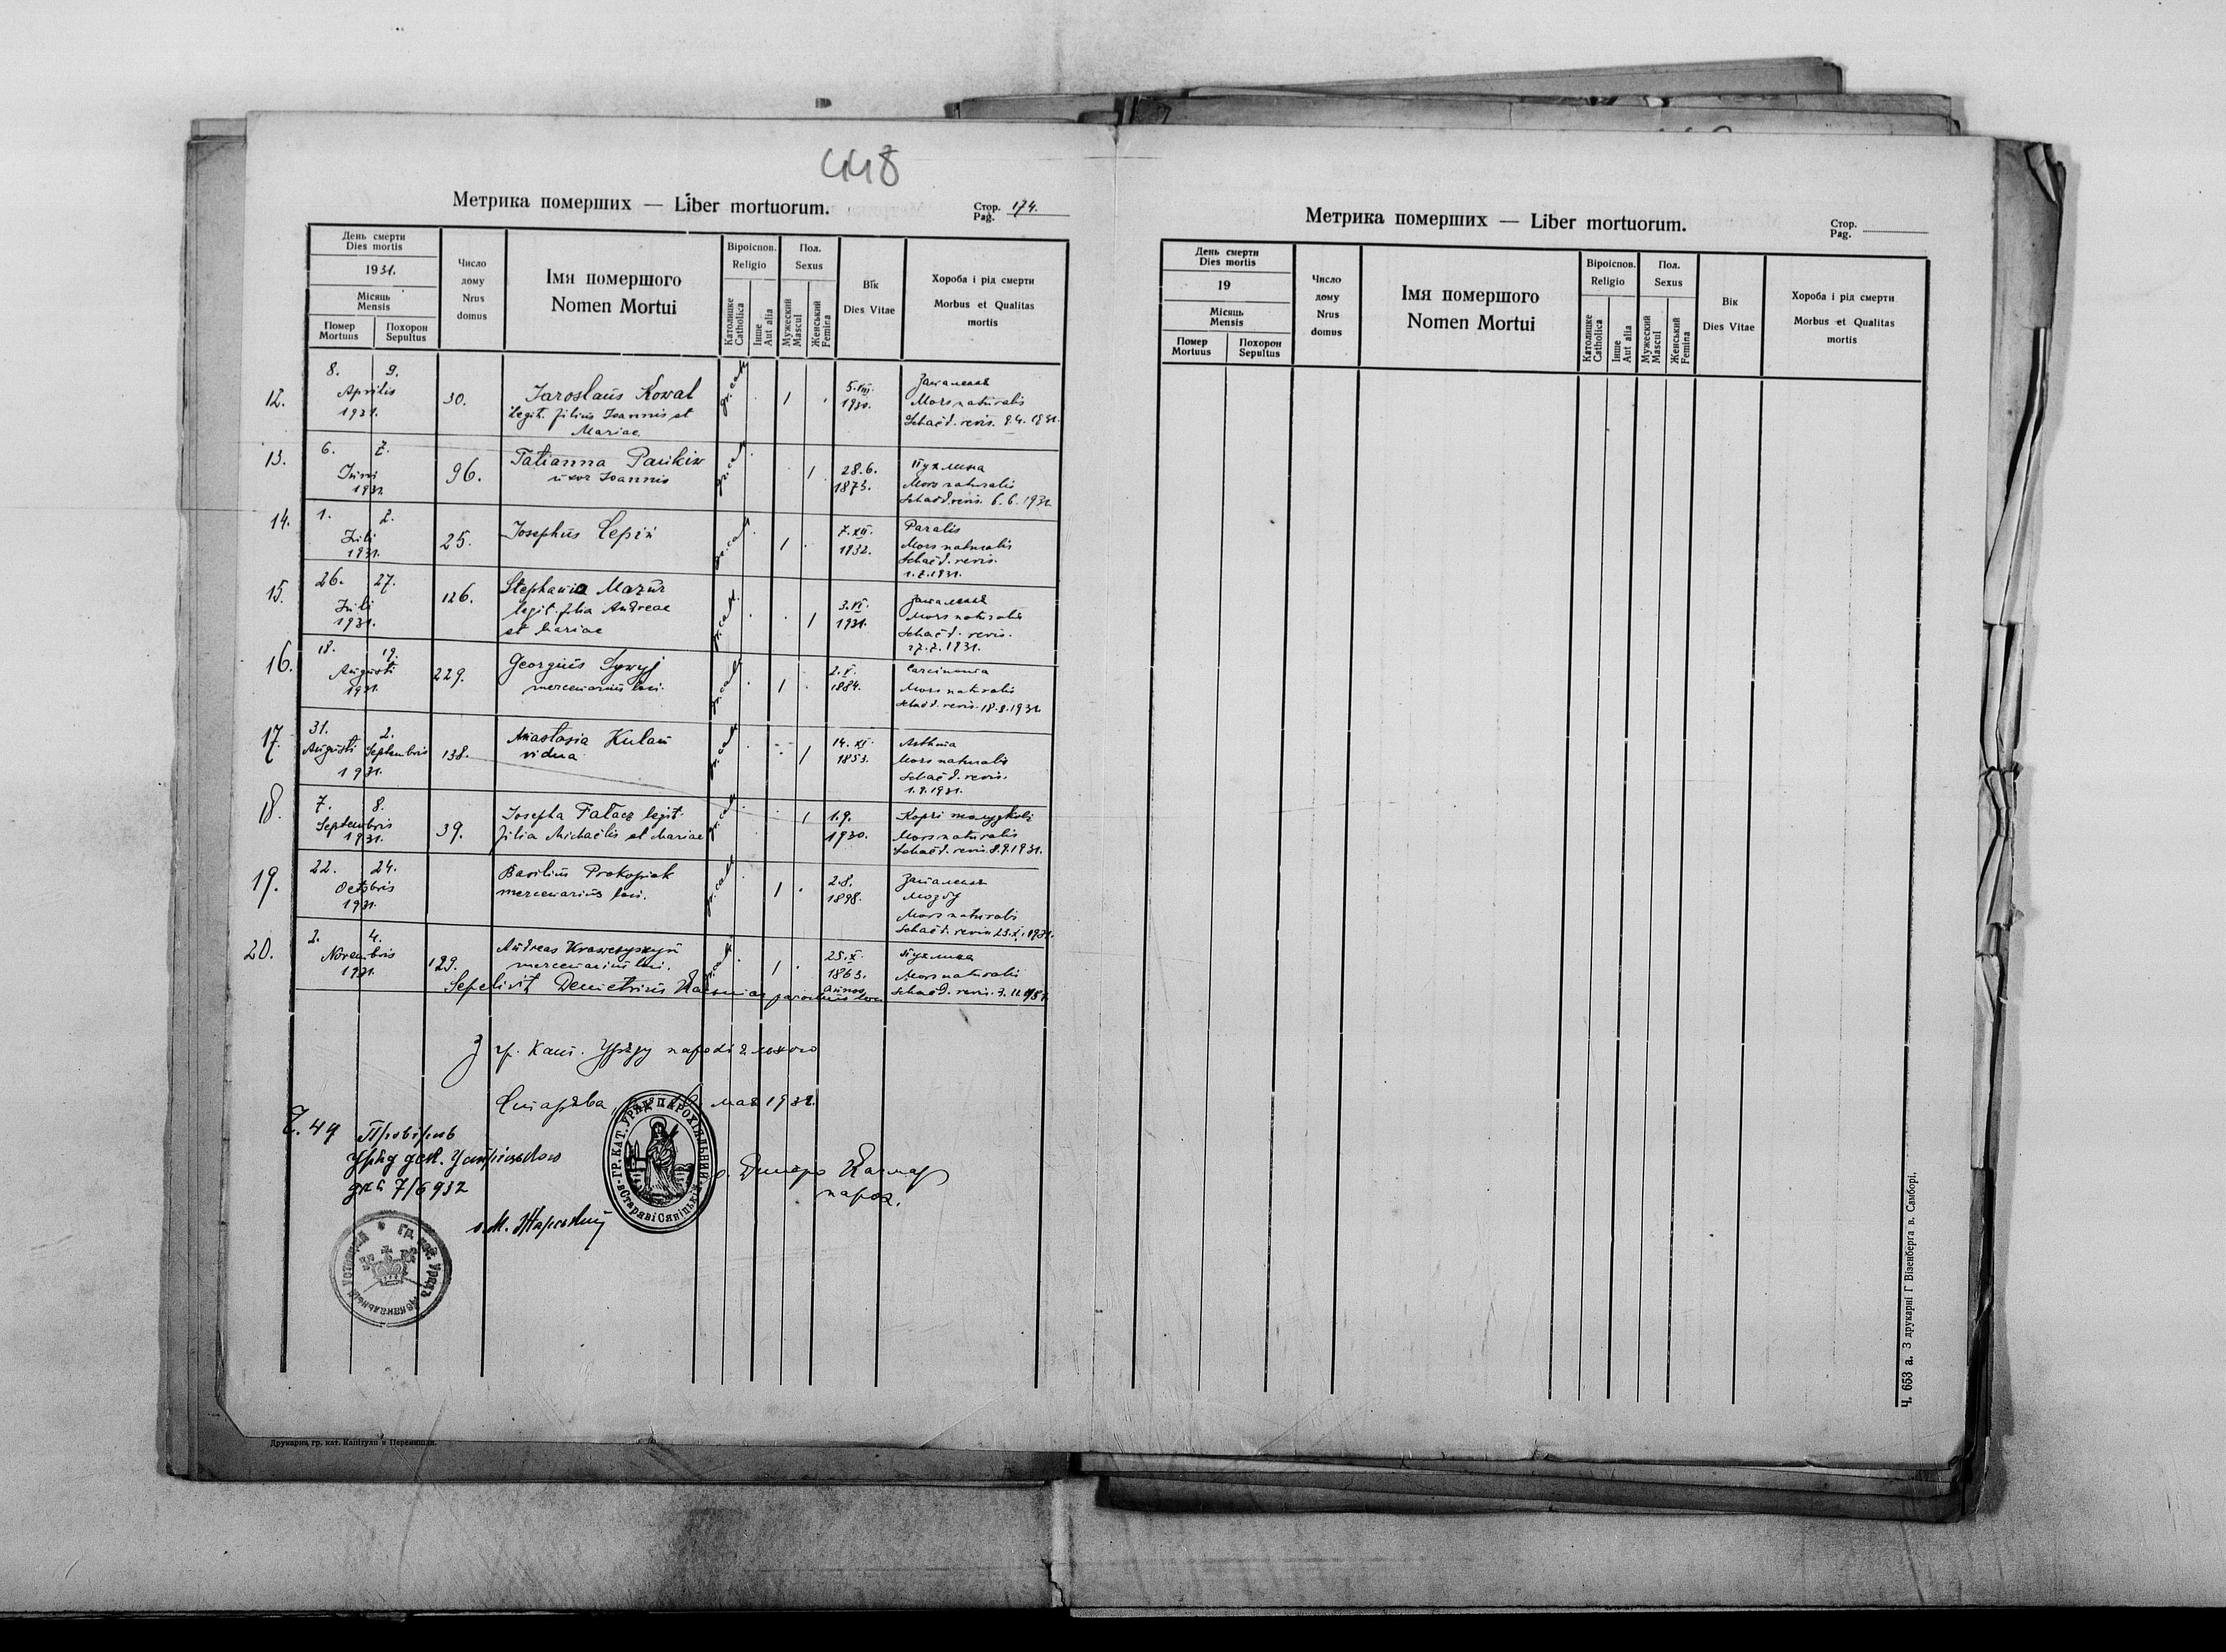 448
Метрика померших — Liber mortuorum.
Стор.
Pag. 174.
День смерти
Dies mortis
1931.
Місяць
Mensis
Помер
Mortuus
Похорон
Sepultus
Число
дому
Nrus
domus
Імя помершого
Nomen Mortui
Віроіспов.
Religio
Католицке
Catholica
Інше
Aut alia
Пол.
Sexus
Мужеский
Mascul
Женський
Femina
Вік
Dies Vitae
Хороба і рід смерти
Morbus et Qualitas
mortis
12. 8. 9. Aprilis 1931. 30. Iaroslaus Kowal gr. cat. 1 5. VIII. 1930.
legit. filius Ioannis et
Mariae
Mors naturalis
Schaed. revis. 9.4. 1931.
13. 6. 7. Iuni 1931 96. Tatianna Pańkiw gr. cat. 1 28. 6. 1873.
uxor Ioannis
Пухлина
Mors naturalis
Schaed. revis. 6. 6. 1931.
14. 1. 2. Iuli 1931. 25. Iosephus gr. cat. 1 7. XII.
Paralis
Mors naturalis
Schaed. revis.
1. 7. 1931.
15. 26. 27. Iuli 1931. 126. Stephania Mazur gr. cat. 1 3. VI. 1931.
legit. filia Andreae
et Mariae
Mors naturalis
Schaed. revis.
27. 7. 1931.
16. 18. 19. Augusti 1931. 229. Georgius Sywyj gr. cat. 1 2. V. 1884.
mercenarius loci.
Carcinoma
Mors naturalis
Schaed. revis. 18. 8. 1931
17. 31. Augusti 2. Septembris 1931. 138. Anastasia Kulań gr. cat. 1 14. XI. 1853.
vidua
Asthma
Mors naturalis
Schaed. revis.
1. 9. 1931.
18. 7. 8. Septembris 1931. 39. Iosepha Fałacz legit. gr. cat. 1 1.9. 1930.
filia Michaëlis et Mariae
Mors naturalis
Schaed. revis. 8. 9. 1931.
19. 22. 24. Octobris 1931. Basilius Prokopiak gr. cat. 1 2.8. 1898.
mercenarius loci.
Запаленя
Мозгу
Mors naturalis
Schaed. revis 23. X. 1931.
20. 2. 4. Novembris 1931. 129. Andreas gr. cat. 1 25. X. 1863.
mercenarius loci.
annos
Пухлина
Mors naturalis
Schaed. revis. 3. 11. 1931.
Sepelivit Demetrius parochus loci
З гр. кат. Уряду парохіяльного
Старява, мая 1932.
ГР. КАТ. УРЯД ПАРОХІЯЛЬНИЙ
в Старяві Сяніцькій
о. Дмитро
парох.
Ч. 44 Провірив
Уряд дек. Устріцького
дня 7/6 932
о М. Жарський
Гр. кат. Уряд
Друкарня гр. кат. Капітули в Перемишли.
Метрика померших — Liber mortuorum.
Стор.
Pag.
День смерти
Dies mortis
19
Місяць
Mensis
Помер
Mortuus
Похорон
Sepultus
Число
дому
Nrus
domus
Імя помершого
Nomen Mortui
Віроіспов.
Religio
Католицке
Catholica
Інше
Aut alia
Пол.
Sexus
Мужеский
Mascul
Женський
Femina
Вік
Dies Vitae
Хороба і рід смерти
Morbus et Qualitas
mortis
Ч. 653 а. З друкарні Г Візенберга в. Самборі.